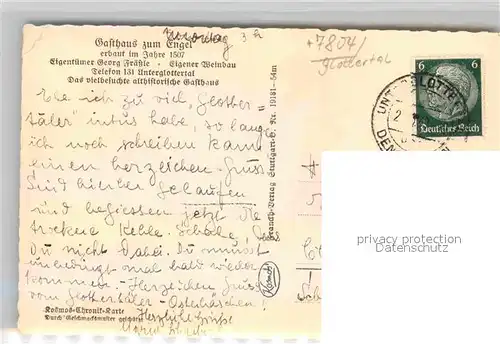 Sonntag
+7804/
Glottertal
Gasthaus zum Engel
erbaut im Jahre 1507
Eigentümer Georg Fräßle · Eigener Weinbau
Telefon 131 Unterglottertal
Das vielbesuchte althistorische Gasthaus
6 6
Deutsches Reich
Ehe ich zu viel „Glotter-
täler" intus habe, so lange
ich noch schreiben kann
einen herzlichen Gruss
Sind hierher gelaufen
und begiessen jetzt die
trockene Kehle. Schade, dass
Du nicht dabei. Du musst
unbedingt mal bald wieder
kommen. - Herzlichen Gruss
vom Glottertäler - Osterhäschen!
Herzliche Grüsse
Franckh-Verlag Stuttgart-O. Nr. 19181-54m
Kosmos
Kosmos-Chronik-Karte
Durch Geschmacksmuster geschützt
privacy protection
Datenschutz